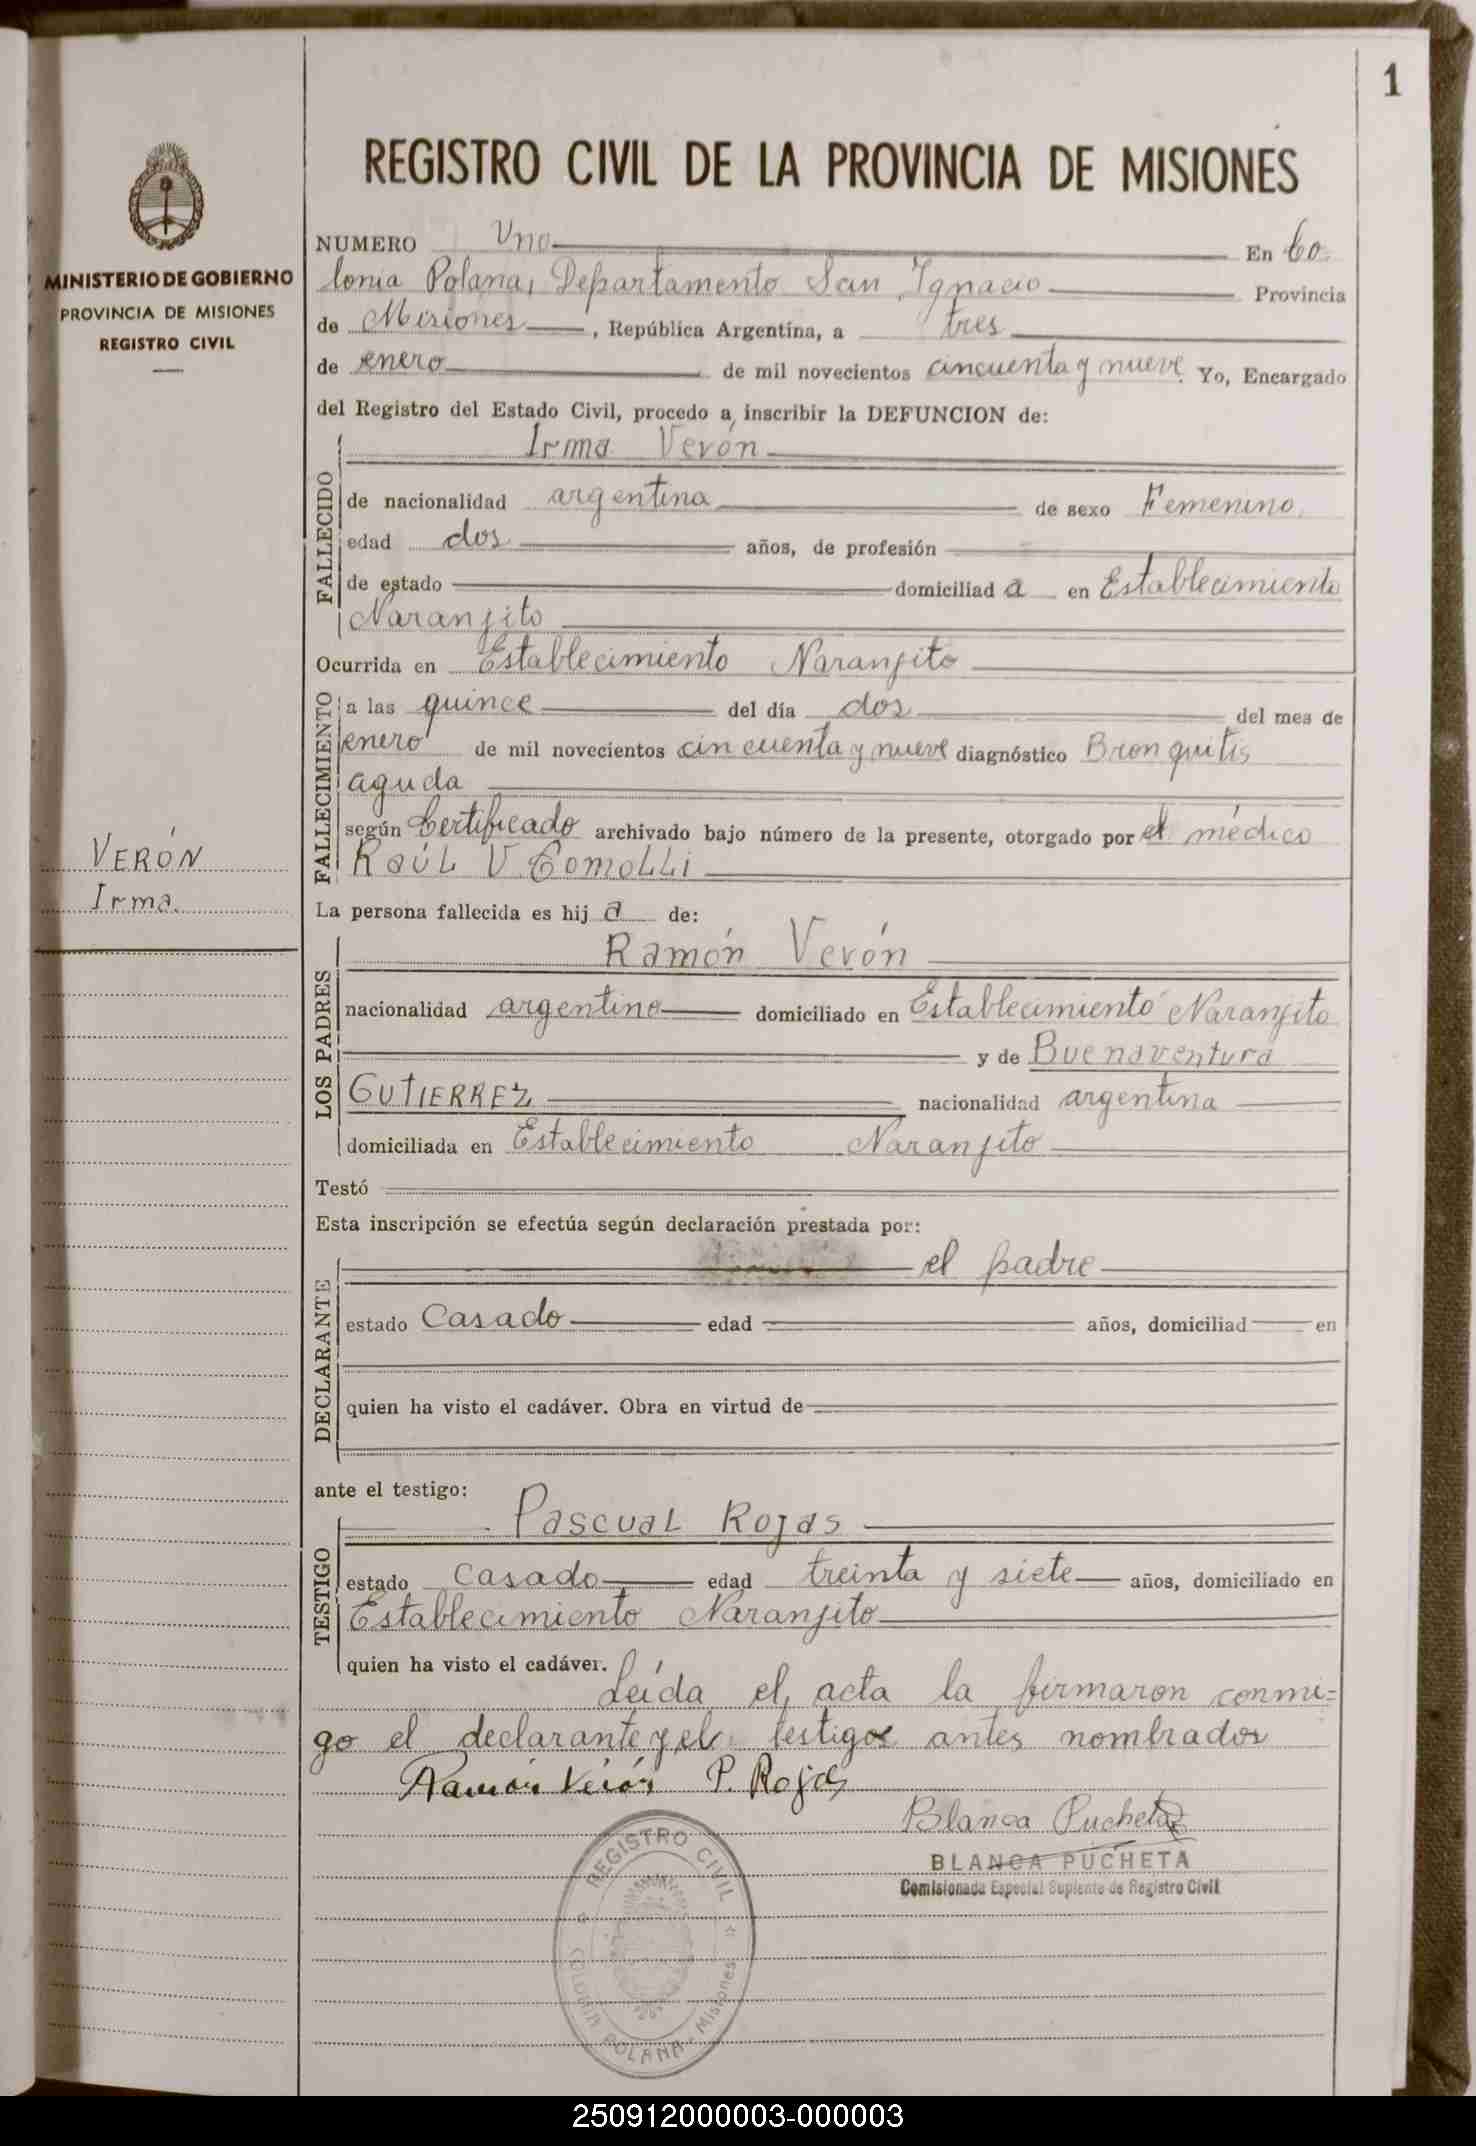 1
REGISTRO CIVIL DE LA PROVINCIA DE MISIONES
MINISTERIO DE GOBIERNO
PROVINCIA DE MISIONES
REGISTRO CIVIL
NUMERO Uno En Co
lonia Polana, Departamento San Ignacio Provincia
de Misiones, República Argentina, a tres
de enero de mil novecientos cincuenta y nueve. Yo, Encargado
del Registro del Estado Civil, procedo a inscribir la DEFUNCION de:
FALLECIDO
Irma Verón
de nacionalidad argentina de sexo Femenino
edad dos años, de profesión
de estado domiciliad a en Establecimiento
Naranjito
Ocurrida en Establecimiento Naranjito
FALLECIMIENTO
a las quince del día dos del mes de
enero de mil novecientos cincuenta y nueve diagnóstico Bronquitis
aguda
según Certificado archivado bajo número de la presente, otorgado por el médico
Raúl V. Comolli
VERÓN
Irma
La persona fallecida es hij a de:
LOS PADRES
Ramón Verón
nacionalidad argentino domiciliado en Establecimiento Naranjito
y de Buenaventura
GUTIERREZ nacionalidad argentina
domiciliada en Establecimiento Naranjito
Testó
Esta inscripción se efectúa según declaración prestada por:
DECLARANTE
el padre
estado Casado edad años, domiciliad en
quien ha visto el cadáver. Obra en virtud de
ante el testigo:
TESTIGO
Pascual Rojas
estado Casado edad treinta y siete años, domiciliado en
Establecimiento Naranjito
quien ha visto el cadáver. Leída el acta la firmaron conmi=
go el declarante y el testigo antes nombrados
Ramón Verón P. Rojas
Blanca Pucheta
BLANCA PUCHETA
Comisionada Especial Suplente de Registro Civil
REGISTRO CIVIL
COLONIA POLANA - Misiones
250912000003-000003